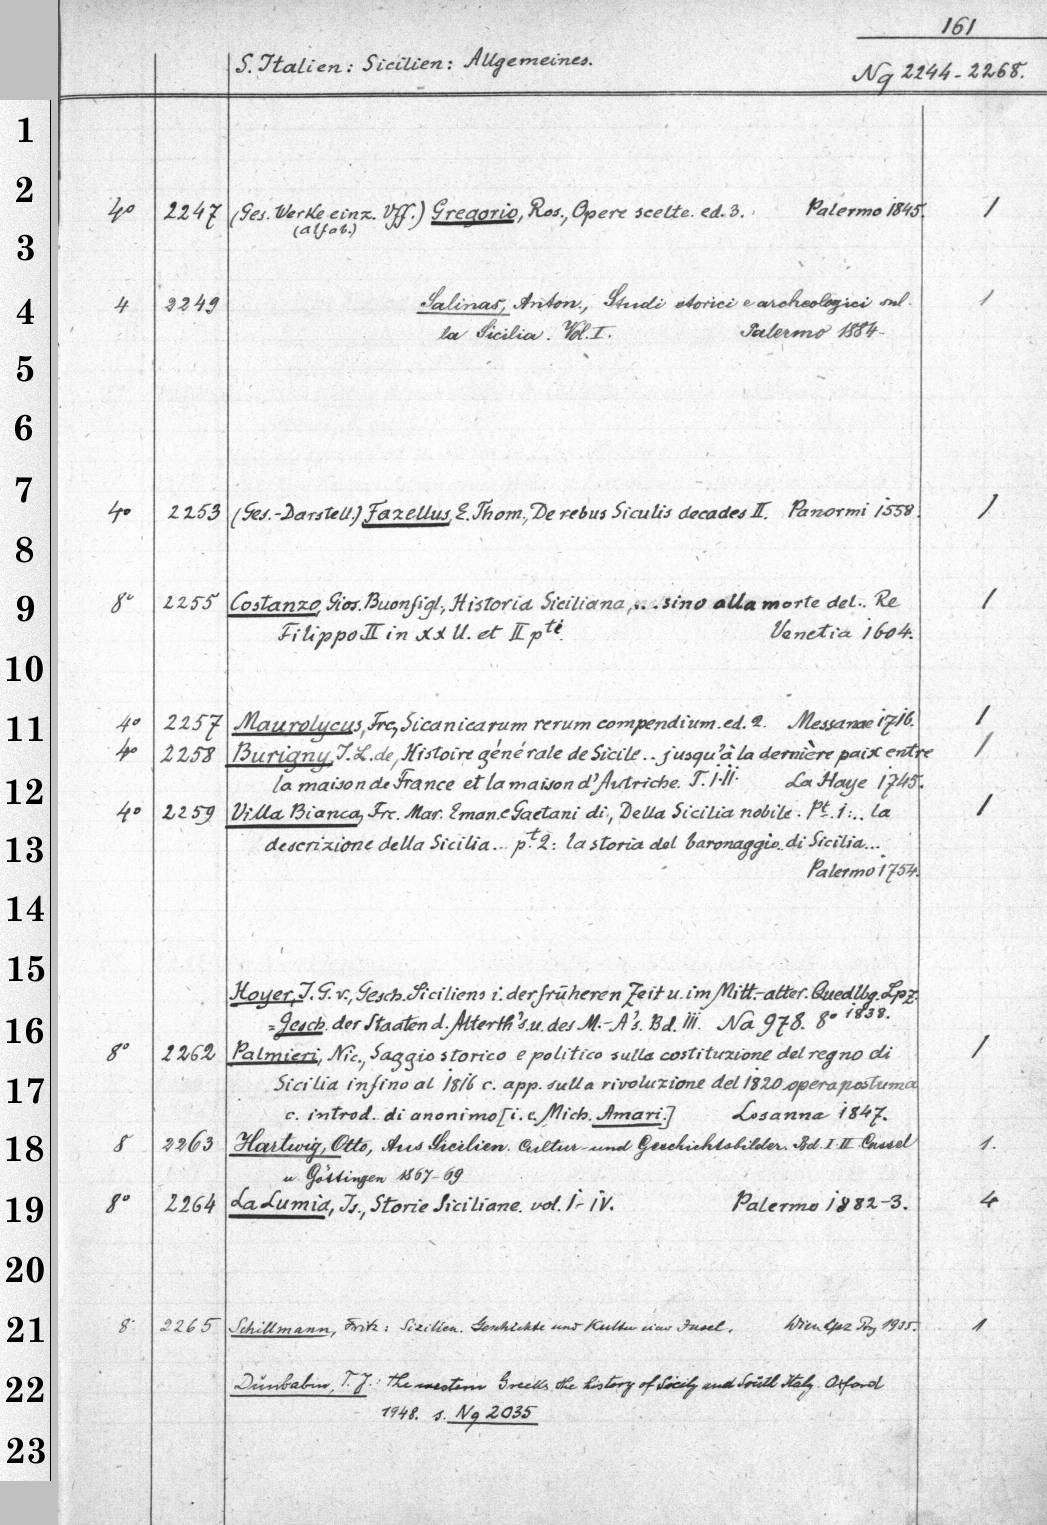 161
S. Italien: Sicilien: Allgemeines.
Nq 2244-2268.
1
2
4o 2247 (Ges. Werke einz. Vff.) Gregorio, Ros., Opere scelte. ed. 3. Palermo 1845. 1
(alfab.)
3
4 4 2249 Salinas, Anton., Studi storici e archeologici sul-
la Sicilia. Vol. I. Palermo 1884. 1
5
6
7
4o 2253 (Ges.-Darstell.) Fazellus, F. Thom., De rebus Siculis decades II. Panormi 1558. 1
8
9 8o 2255 Costanzo, Gios. Buonfigl., Historia Siciliana, ... sino alla morte del.. Re 1
Filippo II in XX ll. et II pti Venetia 1604.
10
11 4o 2257 Maurolycus, Frc., Sicanicarum rerum compendium. ed. 2. Messanae 1716. 1
4o 2258 Burigny, J. L. de, Histoire générale de Sicile .. jusqu'à la dernière paix entre 1
12 la maison de France et la maison d'Autriche. T. I-II. La Haye 1745.
4o 2259 Villa Bianca, Frc. Mar. Eman. e Gaetani di, Della Sicilia nobile. Pt. 1: .. la 1
13 descrizione della Sicilia... pt 2: la storia del baronaggio di Sicilia...
Palermo 1754.
14
15
Hoyer, J. G. v., Gesch. Siciliens i. der früheren Zeit u. im Mitt.-alter. Quedlbg. Lpz.
16 = Gesch. der Staaten d. Alterth's. u. des M.-A's. Bd. III. Na 978. 8o 1838.
8o 2262 Palmieri, Nic., Saggio storico e politico sulla costituzione del regno di 1
17 Sicilia infino al 1816 c. app. sulla rivoluzione del 1820 opera postuma
c. introd. di anonimo [i. e. Mich. Amari.] Losanna 1847.
18 8 2263 Hartwig, Otto, Aus Sicilien. Cultur- und Geschichtsbilder. Bd. I-II Cassel 1.
u Göttingen 1867-69
19 8o 2264 La Lumia, Is., Storie Siciliane. vol. I-IV. Palermo 1882-3. 4
20
21 8 2265 Schillmann, Fritz: Sizilien. Geschichte und Kultur einer Insel. Wien Lpz 1935. 1
22 Dunbabin, T. J.: The western Greeks. the history of Sicily and South Italy. Oxford
1948. s. Nq 2035
23